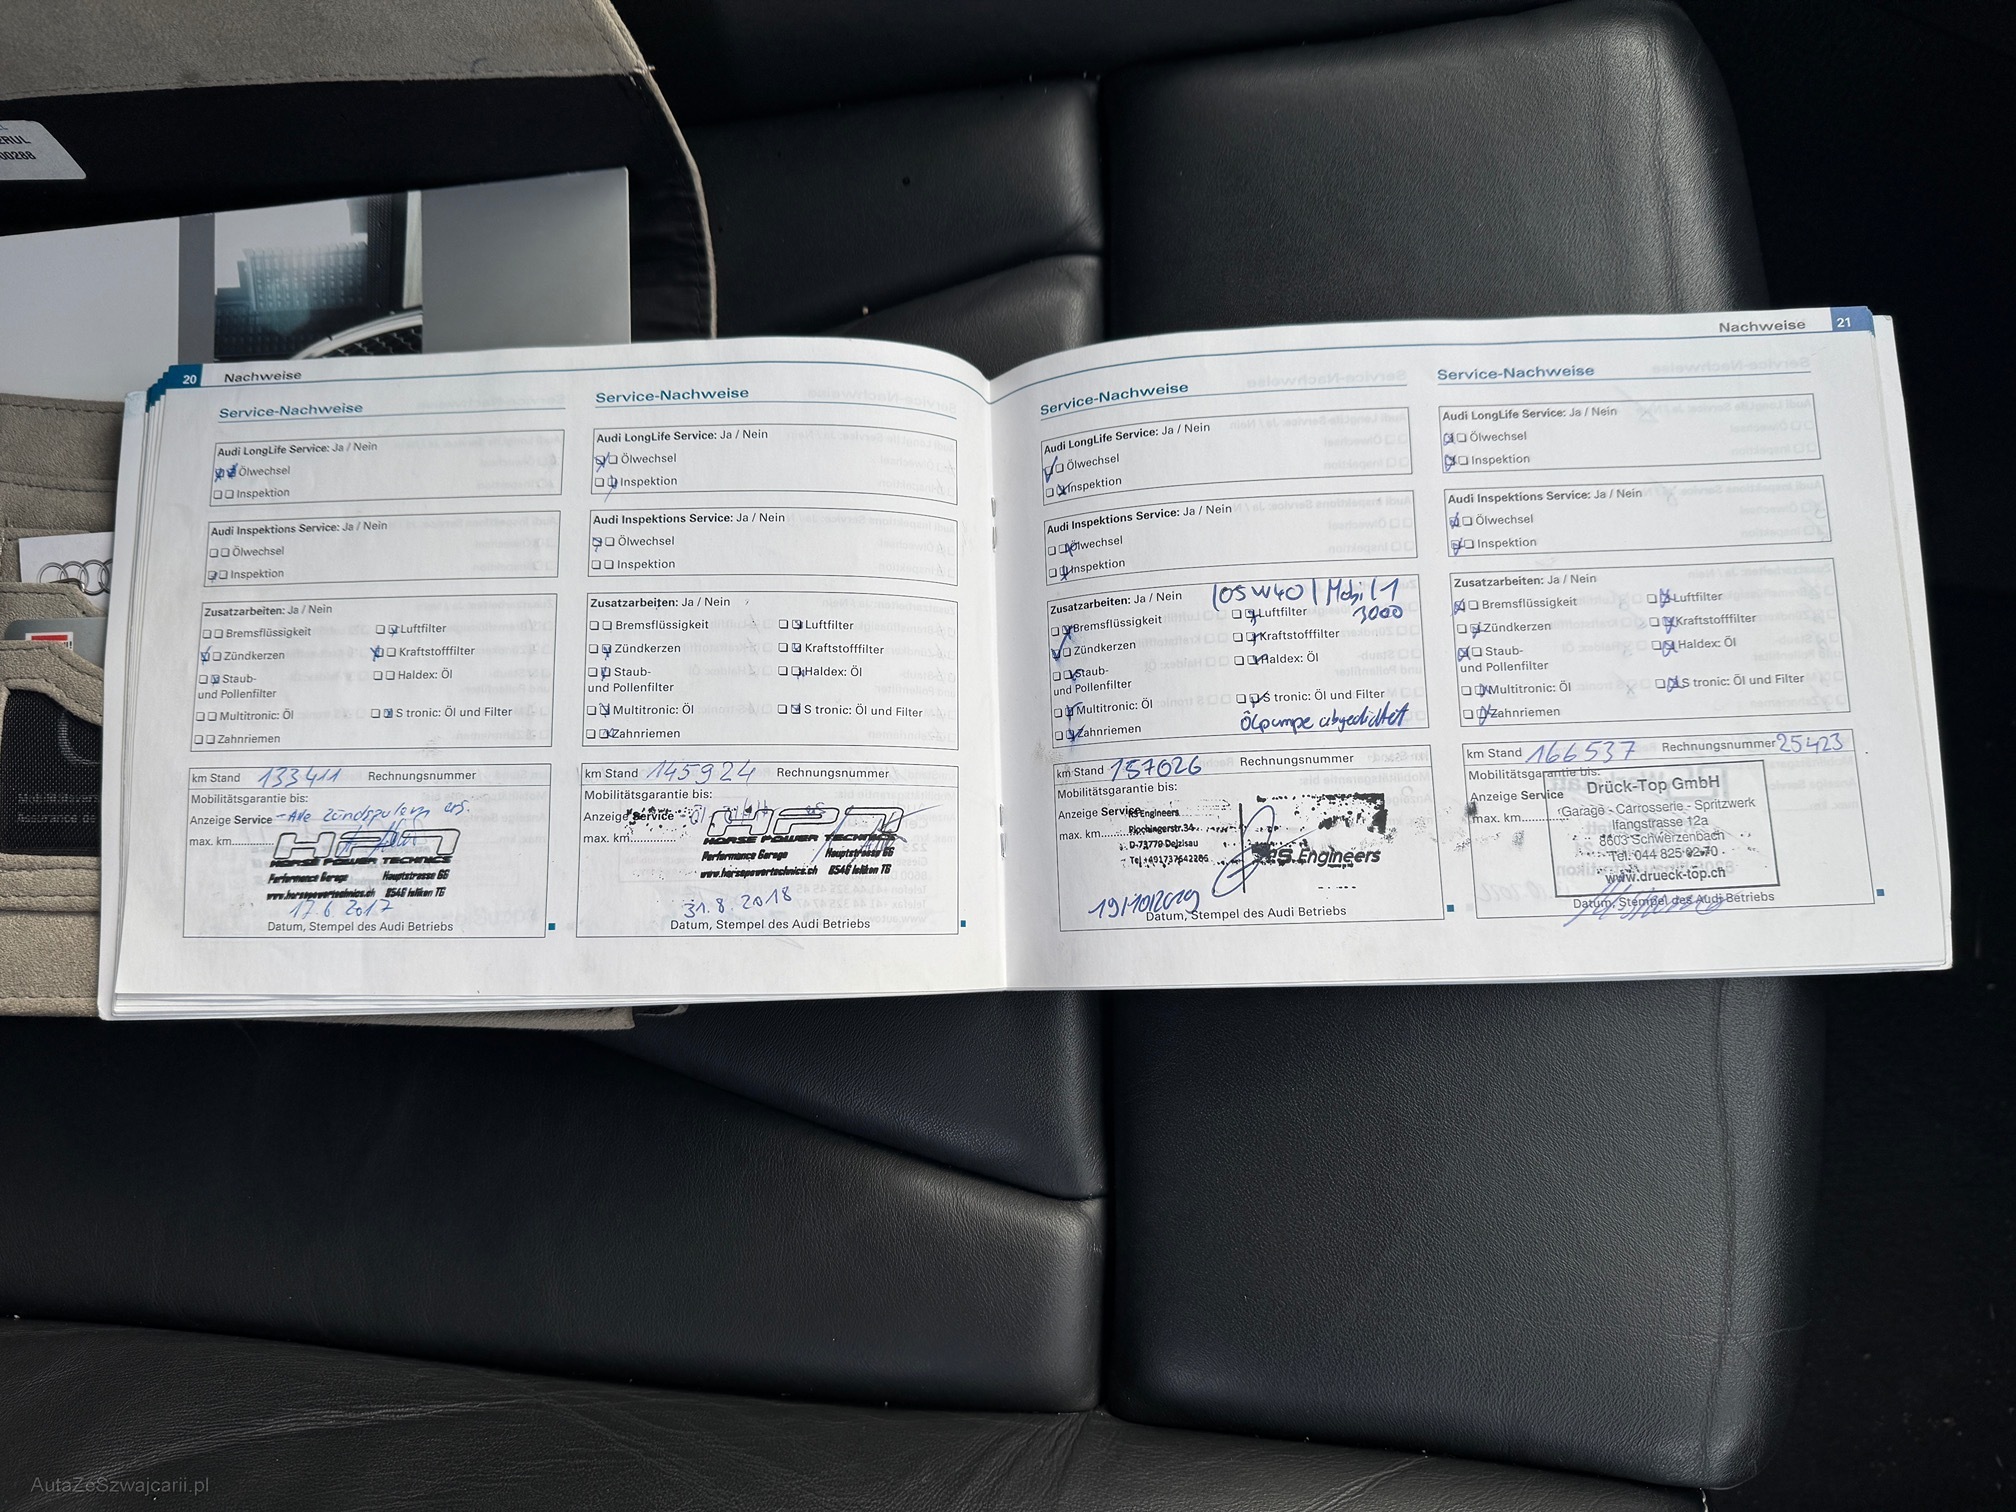 2RUL
00288
20 Nachweise
Service-Nachweise
Audi LongLife Service: Ja / Nein
Ölwechsel
Inspektion
Audi Inspektions Service: Ja / Nein
Ölwechsel
Inspektion
Zusatzarbeiten: Ja / Nein
Bremsflüssigkeit Luftfilter
Zündkerzen Kraftstofffilter
Staub- Haldex: Öl
und Pollenfilter
Multitronic: Öl S tronic: Öl und Filter
Zahnriemen
km Stand 133411 Rechnungsnummer
Mobilitätsgarantie bis:
Anzeige Service - Alle Zündspulen ers.
max. km
HPT
HORSE POWER TECHNICS
Performance Garage Hauptstrasse 66
www.horsepowertechnics.ch 8546 Islikon TG
17.6.2017
Datum, Stempel des Audi Betriebs
Service-Nachweise
Audi LongLife Service: Ja / Nein
Ölwechsel
Inspektion
Audi Inspektions Service: Ja / Nein
Ölwechsel
Inspektion
Zusatzarbeiten: Ja / Nein
Bremsflüssigkeit Luftfilter
Zündkerzen Kraftstofffilter
Staub- Haldex: Öl
und Pollenfilter
Multitronic: Öl S tronic: Öl und Filter
Zahnriemen
km Stand 145924 Rechnungsnummer
Mobilitätsgarantie bis:
Anzeige Service
max. km
HPT
HORSE POWER TECHNICS
Performance Garage Hauptstrasse 66
www.horsepowertechnics.ch 8546 Islikon TG
31.8.2018
Datum, Stempel des Audi Betriebs
Nachweise 21
Service-Nachweise
Audi LongLife Service: Ja / Nein
Ölwechsel
Inspektion
Audi Inspektions Service: Ja / Nein
Ölwechsel
Inspektion
Zusatzarbeiten: Ja / Nein 10SW40 | Mobil 1
Bremsflüssigkeit Luftfilter 3000
Zündkerzen Kraftstofffilter
Staub- Haldex: Öl
und Pollenfilter
Multitronic: Öl S tronic: Öl und Filter
Zahnriemen Ölpumpe abgedichtet
km Stand 157026 Rechnungsnummer
Mobilitätsgarantie bis:
Anzeige Service
max. km
RS Engineers
Plochingerstr.34
D-73779 Deizisau
Tel +491737642286
RS Engineers
19/10/2019
Datum, Stempel des Audi Betriebs
Service-Nachweise
Audi LongLife Service: Ja / Nein
Ölwechsel
Inspektion
Audi Inspektions Service: Ja / Nein
Ölwechsel
Inspektion
Zusatzarbeiten: Ja / Nein
Bremsflüssigkeit Luftfilter
Zündkerzen Kraftstofffilter
Staub- Haldex: Öl
und Pollenfilter
Multitronic: Öl S tronic: Öl und Filter
Zahnriemen
km Stand 166537 Rechnungsnummer 25423
Mobilitätsgarantie bis:
Anzeige Service
max. km
Drück-Top GmbH
Garage - Carrosserie - Spritzwerk
Ifangstrasse 12a
8603 Schwerzenbach
Tel. 044 825 02 70
www.drueck-top.ch
Datum, Stempel des Audi Betriebs
AutaZeSzwajcarii.pl